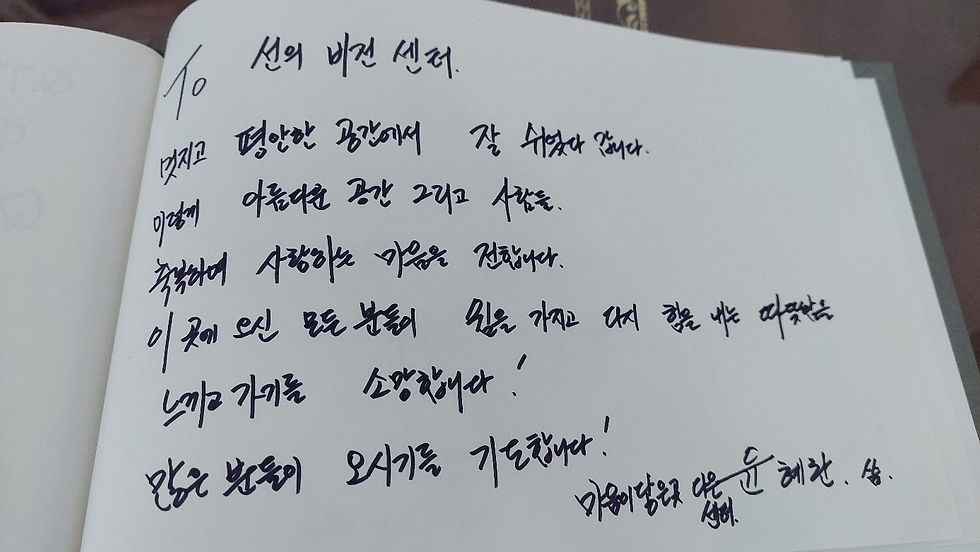 To 선의 비전 센터.
멋지고 평안한 공간에서 잘 쉬었다 갑니다.
이렇게 아름다운 공간 그리고 사람들.
축복하며 사랑하는 마음을 전합니다.
이 곳에 오신 모든 분들이 쉼을 가지고 다시 힘을 내는 따뜻함을
느끼고 가기를 소망합니다!
많은 분들이 오시기를 기도합니다!
마음이 닿은곳 다은 윤혜란.
센터.